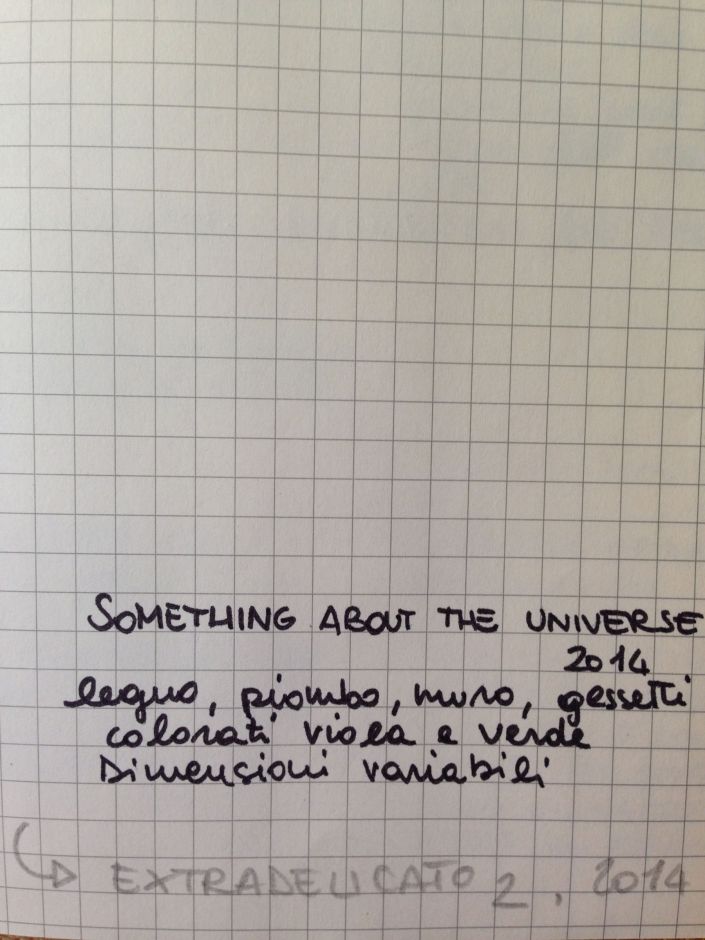 SOMETHING ABOUT THE UNIVERSE
2014
legno, piombo, muro, gessetti
colorati viola e verde
Dimensioni variabili
EXTRADELICATO 2, 2014